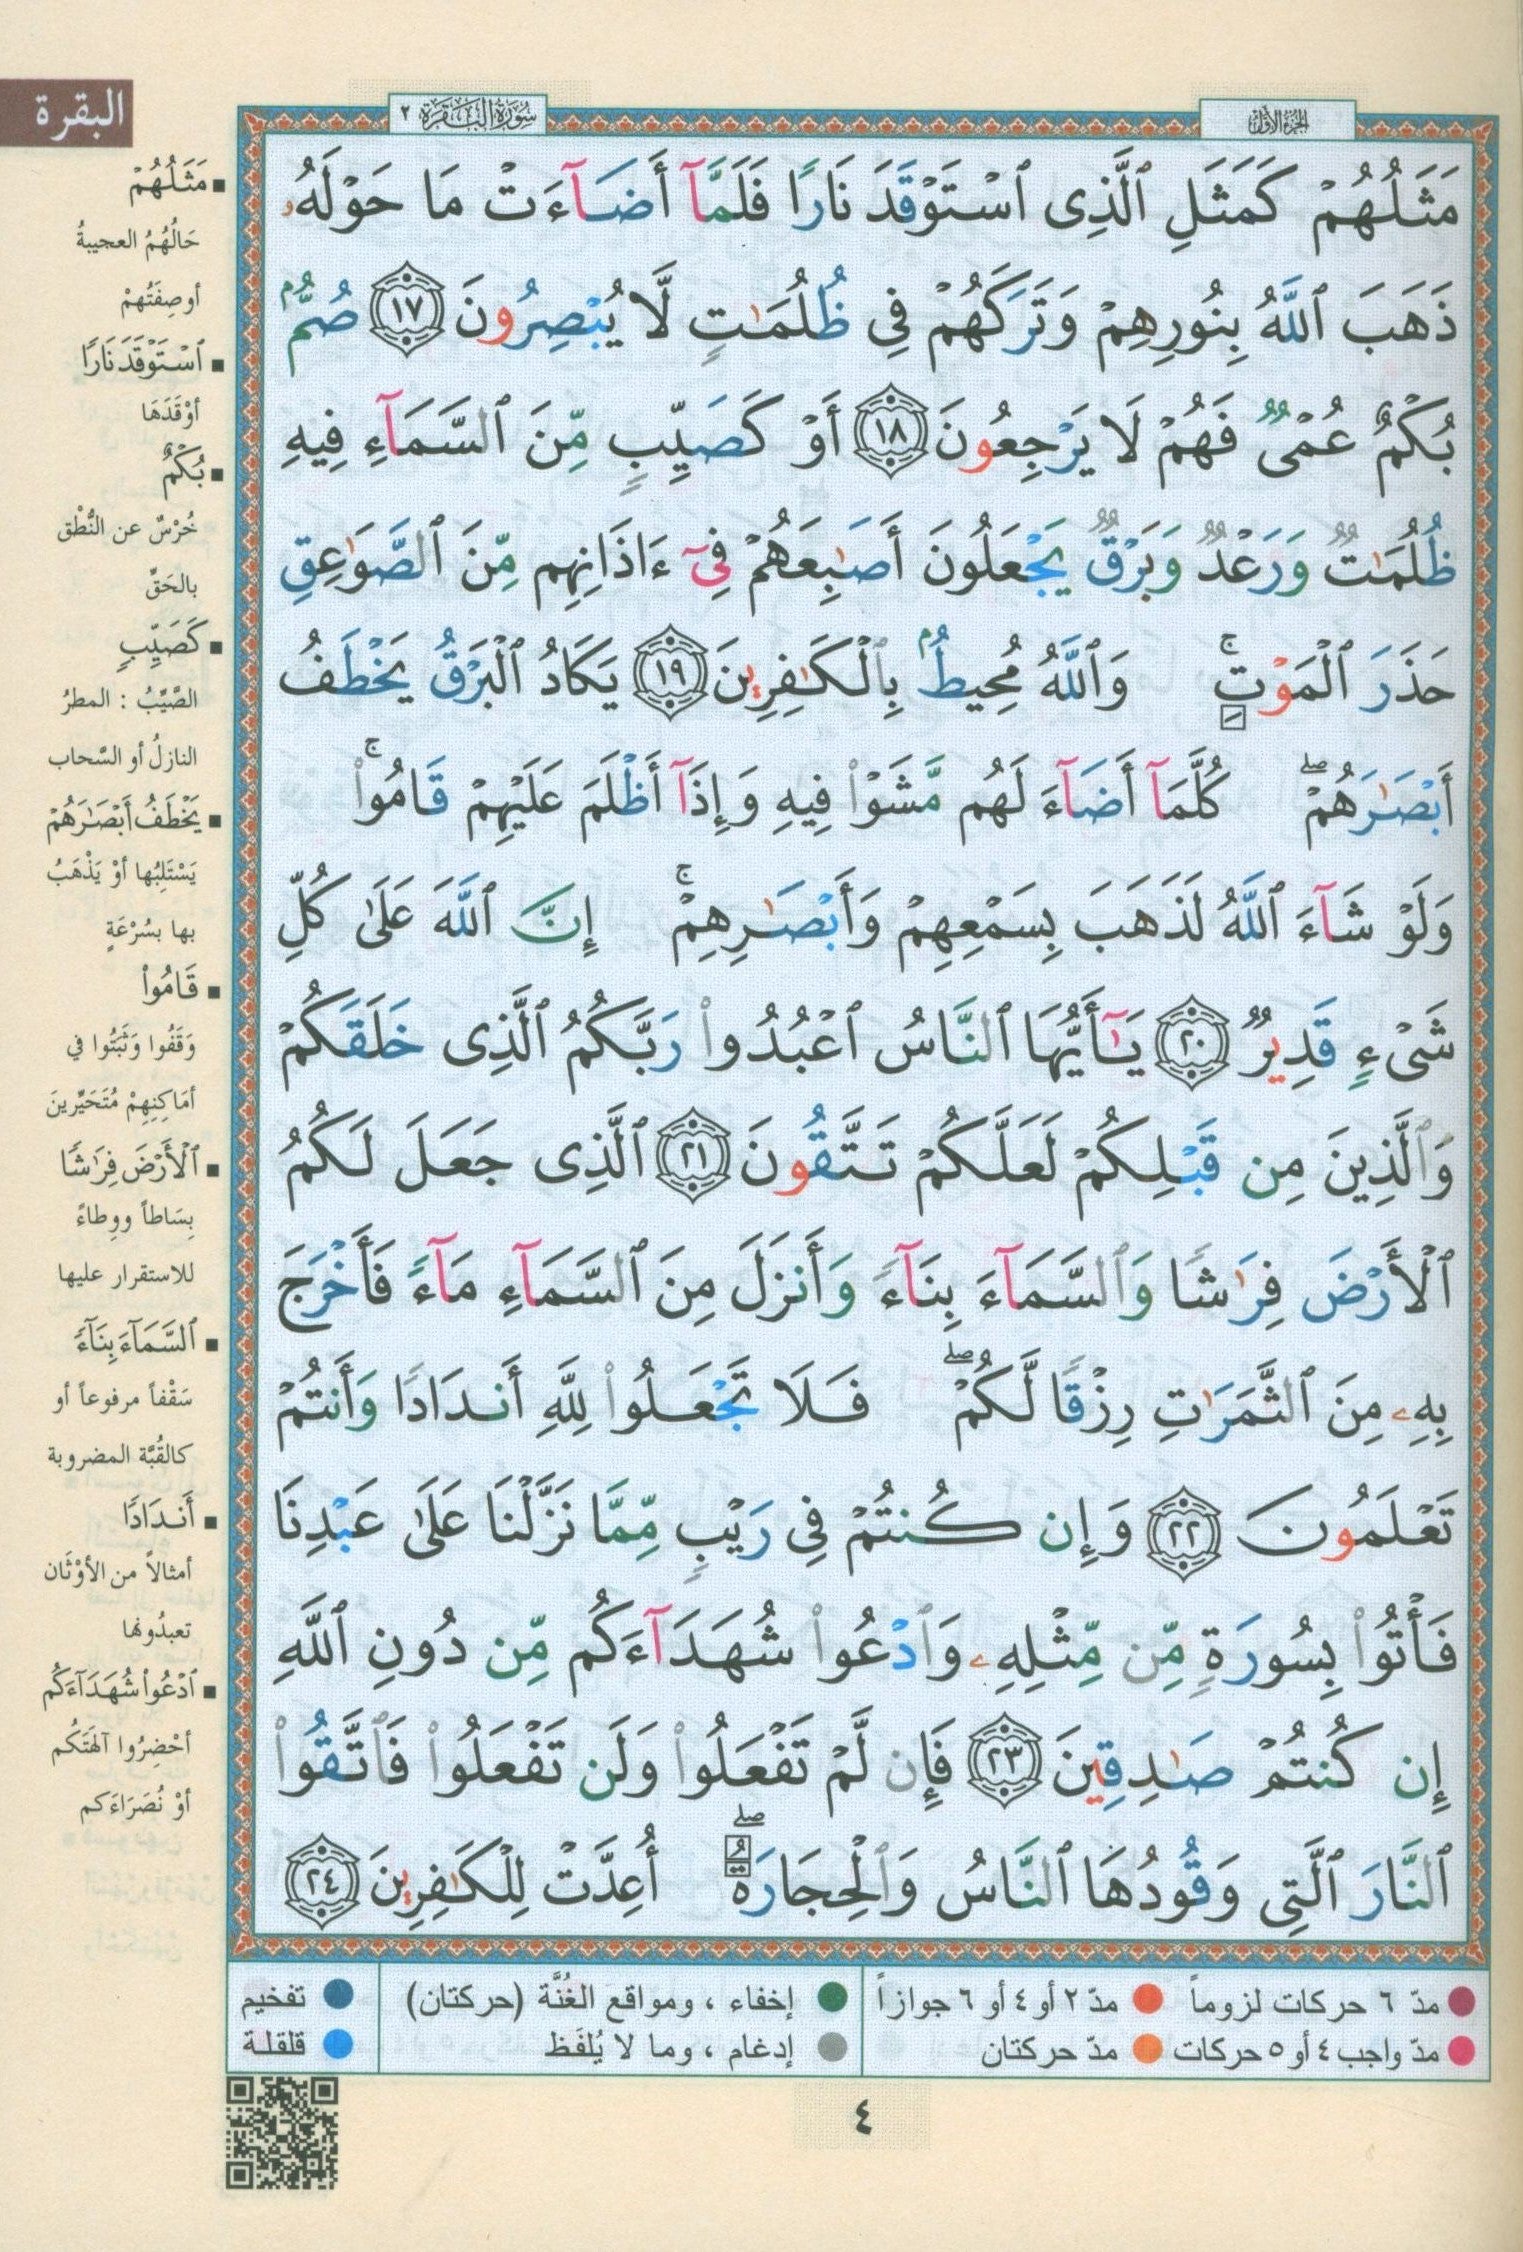 الجزء الأول
سورة البقرة ٢
البقرة
مَثَلُهُمْ كَمَثَلِ ٱلَّذِى ٱسْتَوْقَدَ نَارًا فَلَمَّآ أَضَآءَتْ مَا حَوْلَهُۥ
ذَهَبَ ٱللَّهُ بِنُورِهِمْ وَتَرَكَهُمْ فِى ظُلُمَٰتٍ لَّا يُبْصِرُونَ ١٧ صُمٌّۢ
بُكْمٌ عُمْىٌ فَهُمْ لَا يَرْجِعُونَ ١٨ أَوْ كَصَيِّبٍ مِّنَ ٱلسَّمَآءِ فِيهِ
ظُلُمَٰتٌ وَرَعْدٌ وَبَرْقٌ يَجْعَلُونَ أَصَٰبِعَهُمْ فِىٓ ءَاذَانِهِم مِّنَ ٱلصَّوَٰعِقِ
حَذَرَ ٱلْمَوْتِ ۚ وَٱللَّهُ مُحِيطٌۢ بِٱلْكَٰفِرِينَ ١٩ يَكَادُ ٱلْبَرْقُ يَخْطَفُ
أَبْصَٰرَهُمْ ۖ كُلَّمَآ أَضَآءَ لَهُم مَّشَوْا۟ فِيهِ وَإِذَآ أَظْلَمَ عَلَيْهِمْ قَامُوا۟ ۚ
وَلَوْ شَآءَ ٱللَّهُ لَذَهَبَ بِسَمْعِهِمْ وَأَبْصَٰرِهِمْ ۚ إِنَّ ٱللَّهَ عَلَىٰ كُلِّ
شَىْءٍ قَدِيرٌ ٢٠ يَٰٓأَيُّهَا ٱلنَّاسُ ٱعْبُدُوا۟ رَبَّكُمُ ٱلَّذِى خَلَقَكُمْ
وَٱلَّذِينَ مِن قَبْلِكُمْ لَعَلَّكُمْ تَتَّقُونَ ٢١ ٱلَّذِى جَعَلَ لَكُمُ
ٱلْأَرْضَ فِرَٰشًا وَٱلسَّمَآءَ بِنَآءً وَأَنزَلَ مِنَ ٱلسَّمَآءِ مَآءً فَأَخْرَجَ
بِهِۦ مِنَ ٱلثَّمَرَٰتِ رِزْقًا لَّكُمْ ۖ فَلَا تَجْعَلُوا۟ لِلَّهِ أَندَادًا وَأَنتُمْ
تَعْلَمُونَ ٢٢ وَإِن كُنتُمْ فِى رَيْبٍ مِّمَّا نَزَّلْنَا عَلَىٰ عَبْدِنَا
فَأْتُوا۟ بِسُورَةٍ مِّن مِّثْلِهِۦ وَٱدْعُوا۟ شُهَدَآءَكُم مِّن دُونِ ٱللَّهِ
إِن كُنتُمْ صَٰدِقِينَ ٢٣ فَإِن لَّمْ تَفْعَلُوا۟ وَلَن تَفْعَلُوا۟ فَٱتَّقُوا۟
ٱلنَّارَ ٱلَّتِى وَقُودُهَا ٱلنَّاسُ وَٱلْحِجَارَةُ ۖ أُعِدَّتْ لِلْكَٰفِرِينَ ٢٤
■ مَثَلُهُمْ
حَالُهُمُ العجيبةُ
أو صِفَتُهمْ
■ ٱسْتَوْقَدَ نَارًا
أوْقَدَهَا
■ بُكْمٌ
خُرْسٌ عن النُّطْق
بالحَقِّ
■ كَصَيِّبٍ
الصَّيِّبُ : المطرُ
النازلُ أو السَّحاب
■ يَخْطَفُ أَبْصَٰرَهُمْ
يَسْتَلِبُها أوْ يَذْهَبُ
بها بسُرْعَةٍ
■ قَامُوا۟
وَقَفُوا وَثَبَتُوا في
أمَاكِنِهِمْ مُتَحَيِّرينَ
■ ٱلْأَرْضَ فِرَٰشًا
بِسَاطاً ووِطاءً
للاستقرار عليها
■ ٱلسَّمَآءَ بِنَآءً
سَقْفاً مرفوعاً أو
كالقُبَّة المضروبة
■ أَندَادًا
أمثالاً من الأوْثَان
تعبدُونها
■ ٱدْعُوا۟ شُهَدَآءَكُم
أحْضِرُوا آلهَتَكُم
أوْ نُصَرَاءَكم
مدّ ٦ حركات لزوماً ● مدّ ٢ أو ٤ أو ٦ جوازاً ● إخفاء ، ومواقع الغُنَّة (حركتان) ● تفخيم
مدّ واجب ٤ أو ٥ حركات ● مدّ حركتان ● إدغام ، وما لا يُلفَظ ● قلقلة
٤